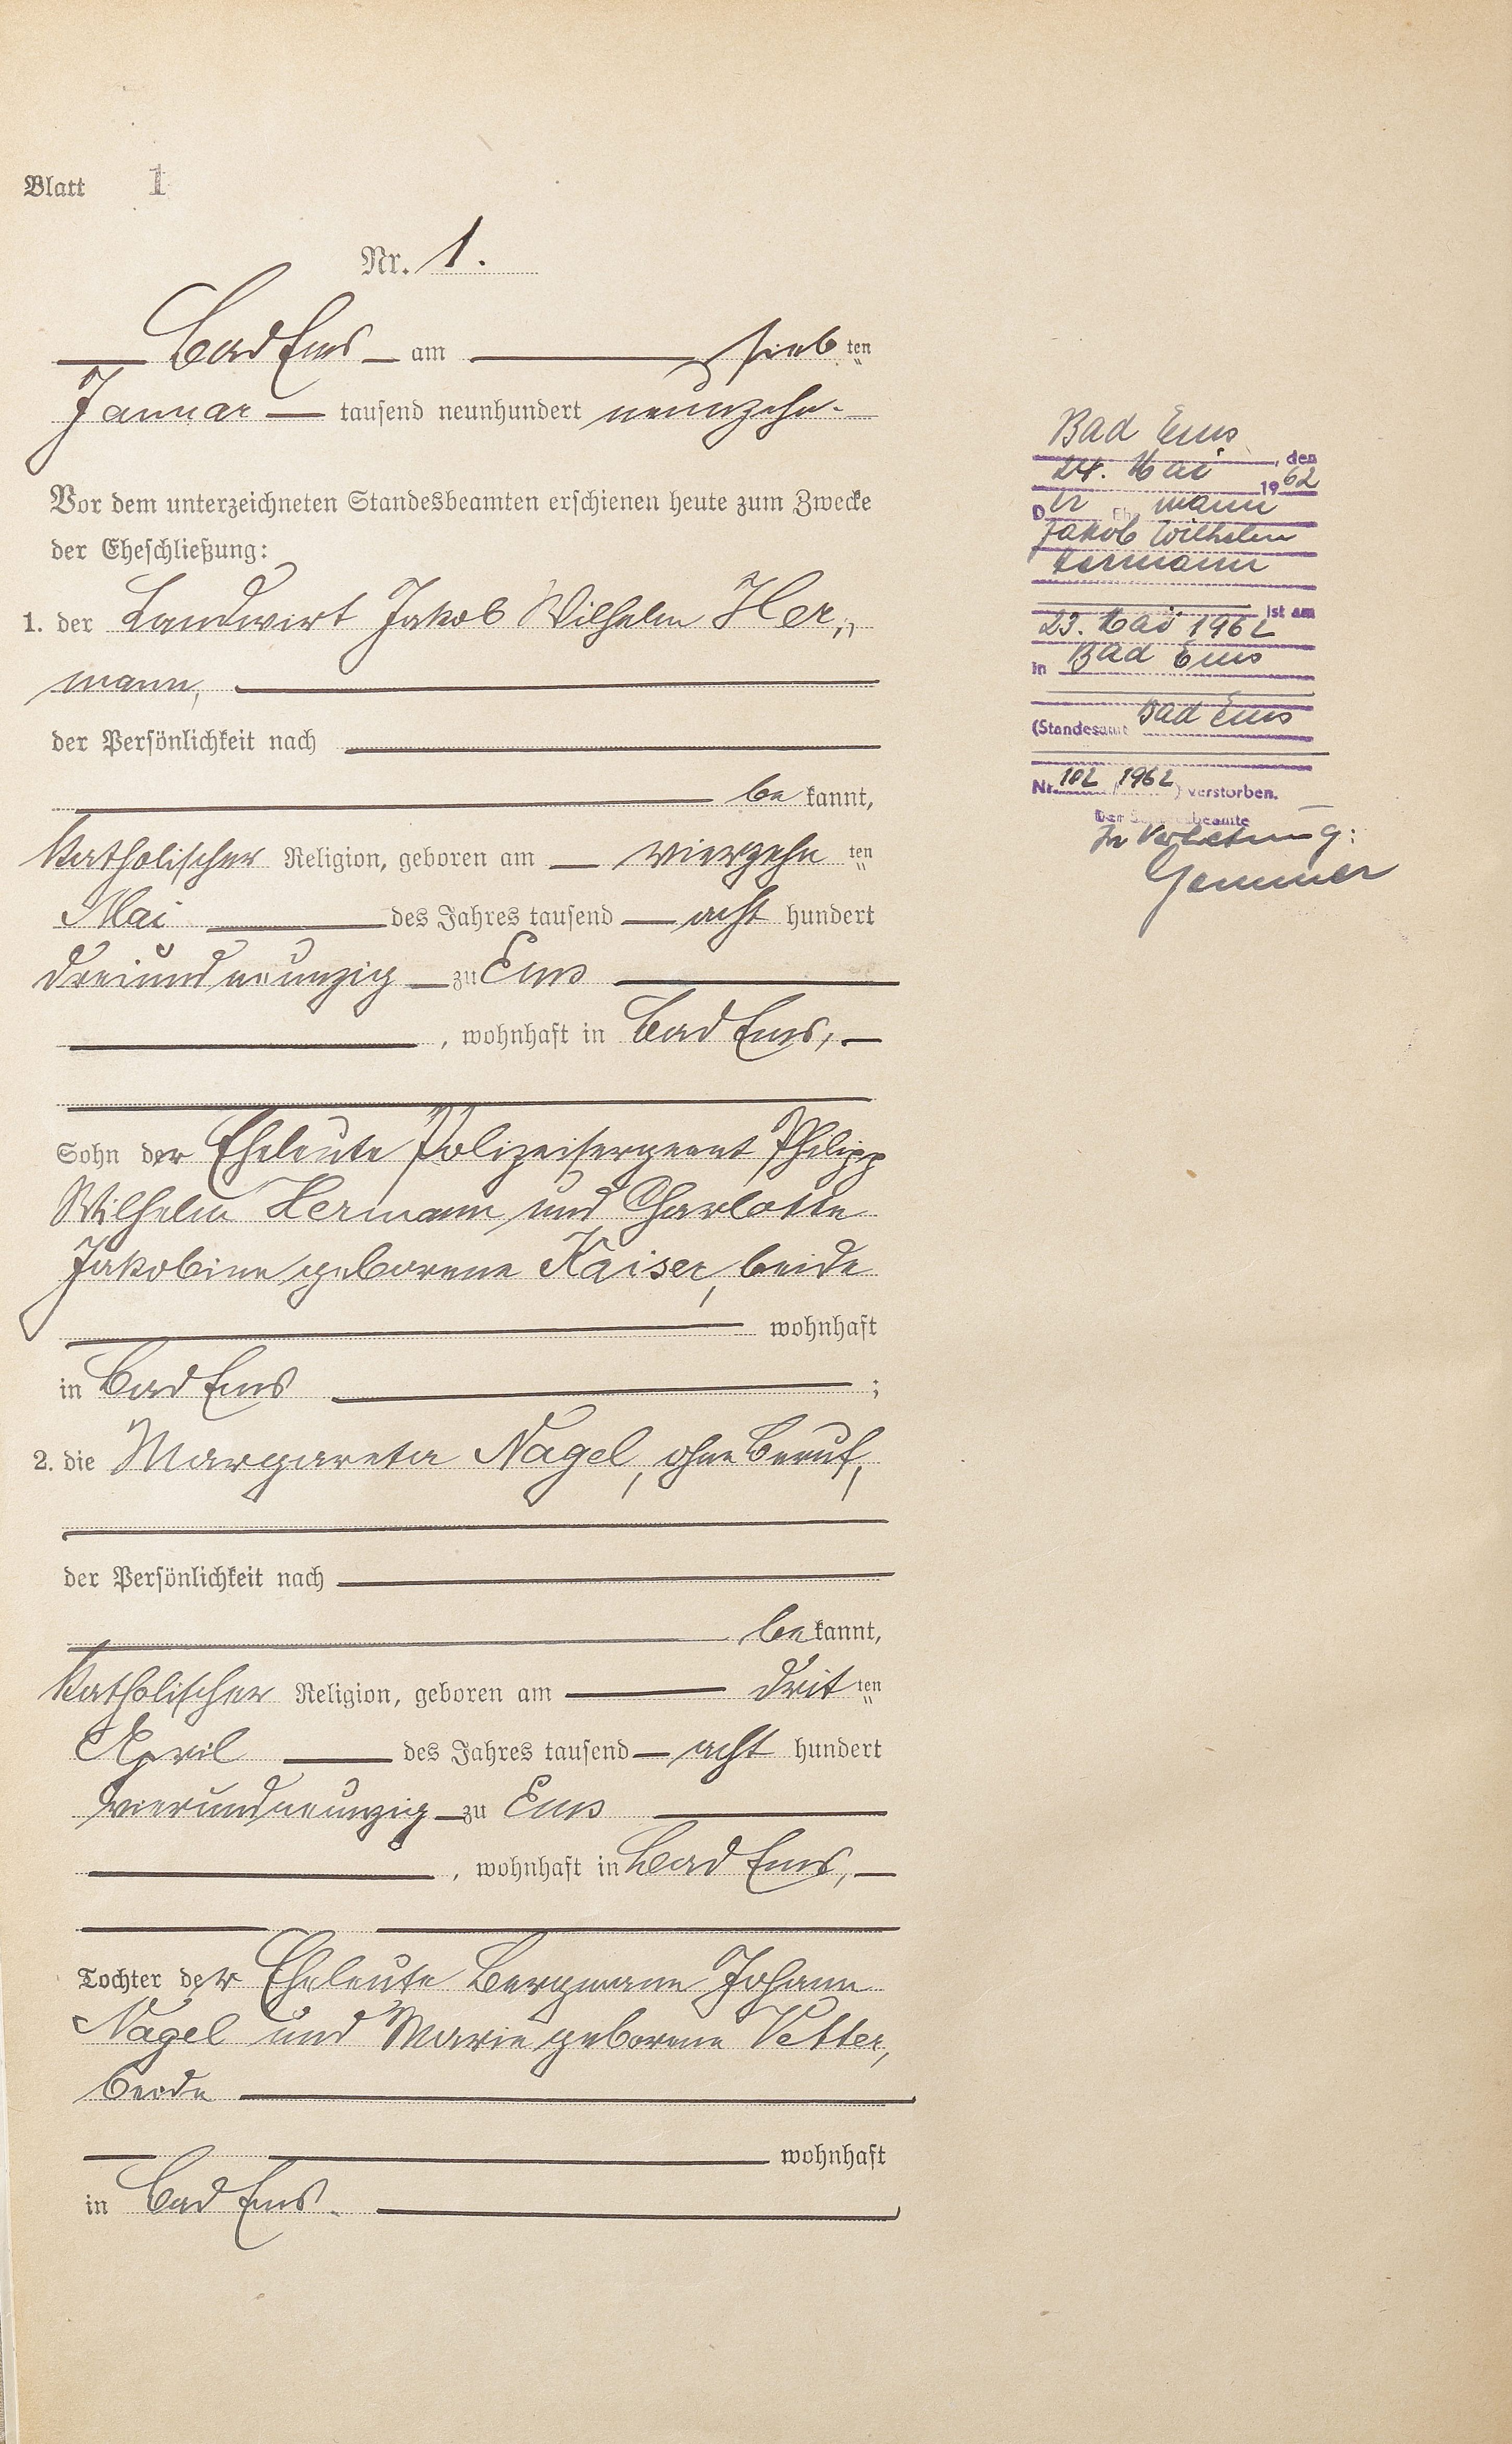 Blatt 1
Nr. 1.
Bad Ems am siebten
Januar tausend neunhundert neunzehn.
Vor dem unterzeichneten Standesbeamten erschienen heute zum Zwecke
der Eheschließung:
1. der Landwirt Jakob Wilhelm Her„
mann,
der Persönlichkeit nach
bekannt,
katholischer Religion, geboren am vierzehnten
Mai des Jahres tausend achthundert
dreiundneunzig zu Ems
, wohnhaft in Bad Ems,
Sohn der Eheleute Polizeisergeant Philipp
Wilhelm Hermann und Charlotte
Jakobine geborene Kaiser, beide
wohnhaft
in Bad Ems ;
2. die Margareta Nagel, ohne Beruf,
der Persönlichkeit nach
bekannt,
katholischer Religion, geboren am dritten
April des Jahres tausend achthundert
vierundneunzig zu Ems
, wohnhaft in Bad Ems,
Tochter der Eheleute Bergmann Johann
Nagel und Marie geborene Vetter,
beide
wohnhaft
in Bad Ems.
Bad Ems, den
24. Mai 1962
Der Ehemann
Jakob Wilhelm
Hermann
ist am
23. Mai 1962
in Bad Ems
(Standesamt Bad Ems
Nr. 102/1962) verstorben.
Der Standesbeamte
In Vertretung:
Gemmer